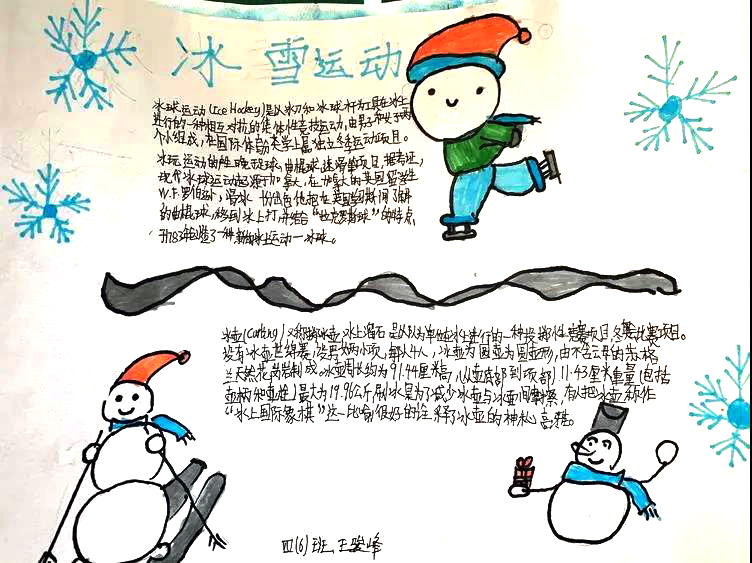 冰雪运动
冰球运动(Ice Hockey)是以冰刀和冰球杆为工具在冰上
进行的一种相互对抗的集体性竞技运动,由男子和女子两
个小组成,在国际体育分类学上属独立冬季运动项目。
现代冰球运动起源于加拿大,在加拿大的英国留学生
W.F.罗伯逊,滑冰
的曲棍球,移到冰上打,并结合“拉克罗斯球”的特点,
于1783年创造了一种新的冰上运动—冰球。
冰壶(Curling)又称掷冰壶,冰上溜石是以队为单位在冰上进行的一种投掷性竞赛项目,冬
设有冰壶比赛,设男女两小项,每队4人,冰壶为圆壶为圆壶形,由不含云母的苏格
兰天然花岗岩制成。冰壶周长约为91.44厘米高,(从壶底部到顶部)11.43厘米重量(包括
壶柄和壶栓)最大为19.96公斤刷冰是为了减少冰壶与冰面间摩擦,有人把冰壶称作
“水上国际象棋”这一比喻很好的诠释了冰壶的神秘,高雅。
四(6)班 王骏峰